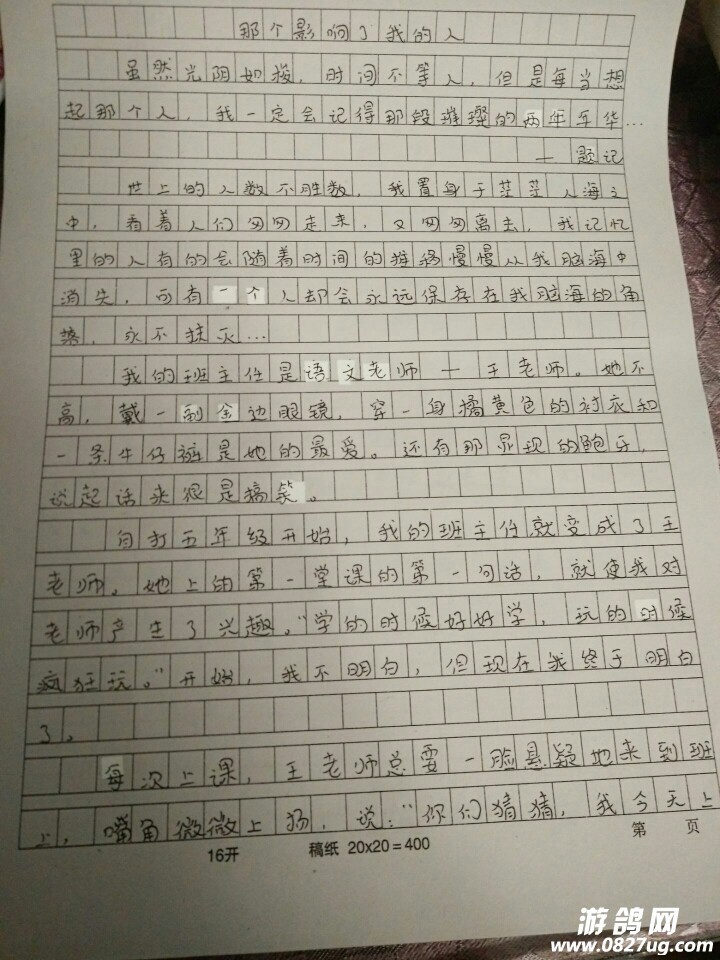 那个影响了我的人
虽然光阴如梭，时间不等人，但是每当想
起那个人，我一定会记得那段璀璨的两年年华…
— 题记
世上的人数不胜数，我置身于茫茫人海之
中，看着人们匆匆走来，又匆匆离去，我记忆
里的人有的会随着时间的推移慢慢从我脑海中
消失，可有一个人却会永远保存在我脑海的角
落，永不抹灭…
我的班主任是语文老师 — 王老师。她不
高，戴一副金边眼镜，穿一身橘黄色的衬衣和
一条牛仔裤是她的最爱。还有那显现的鲍牙，
说起话来很是搞笑。
自打五年级开始，我的班主任就变成了王
老师。她上的第一堂课的第一句话，就使我对
老师产生了兴趣。“学的时候好好学，玩的时候
疯狂玩。”开始，我不明白，但现在我终于明白
了。
每次上课，王老师总要一脸悬疑地来到班
上，嘴角微微上扬，说：“你们猜猜，我今天上
16开 稿纸 20x20=400 第 页
游鸽网
www.0827ug.com